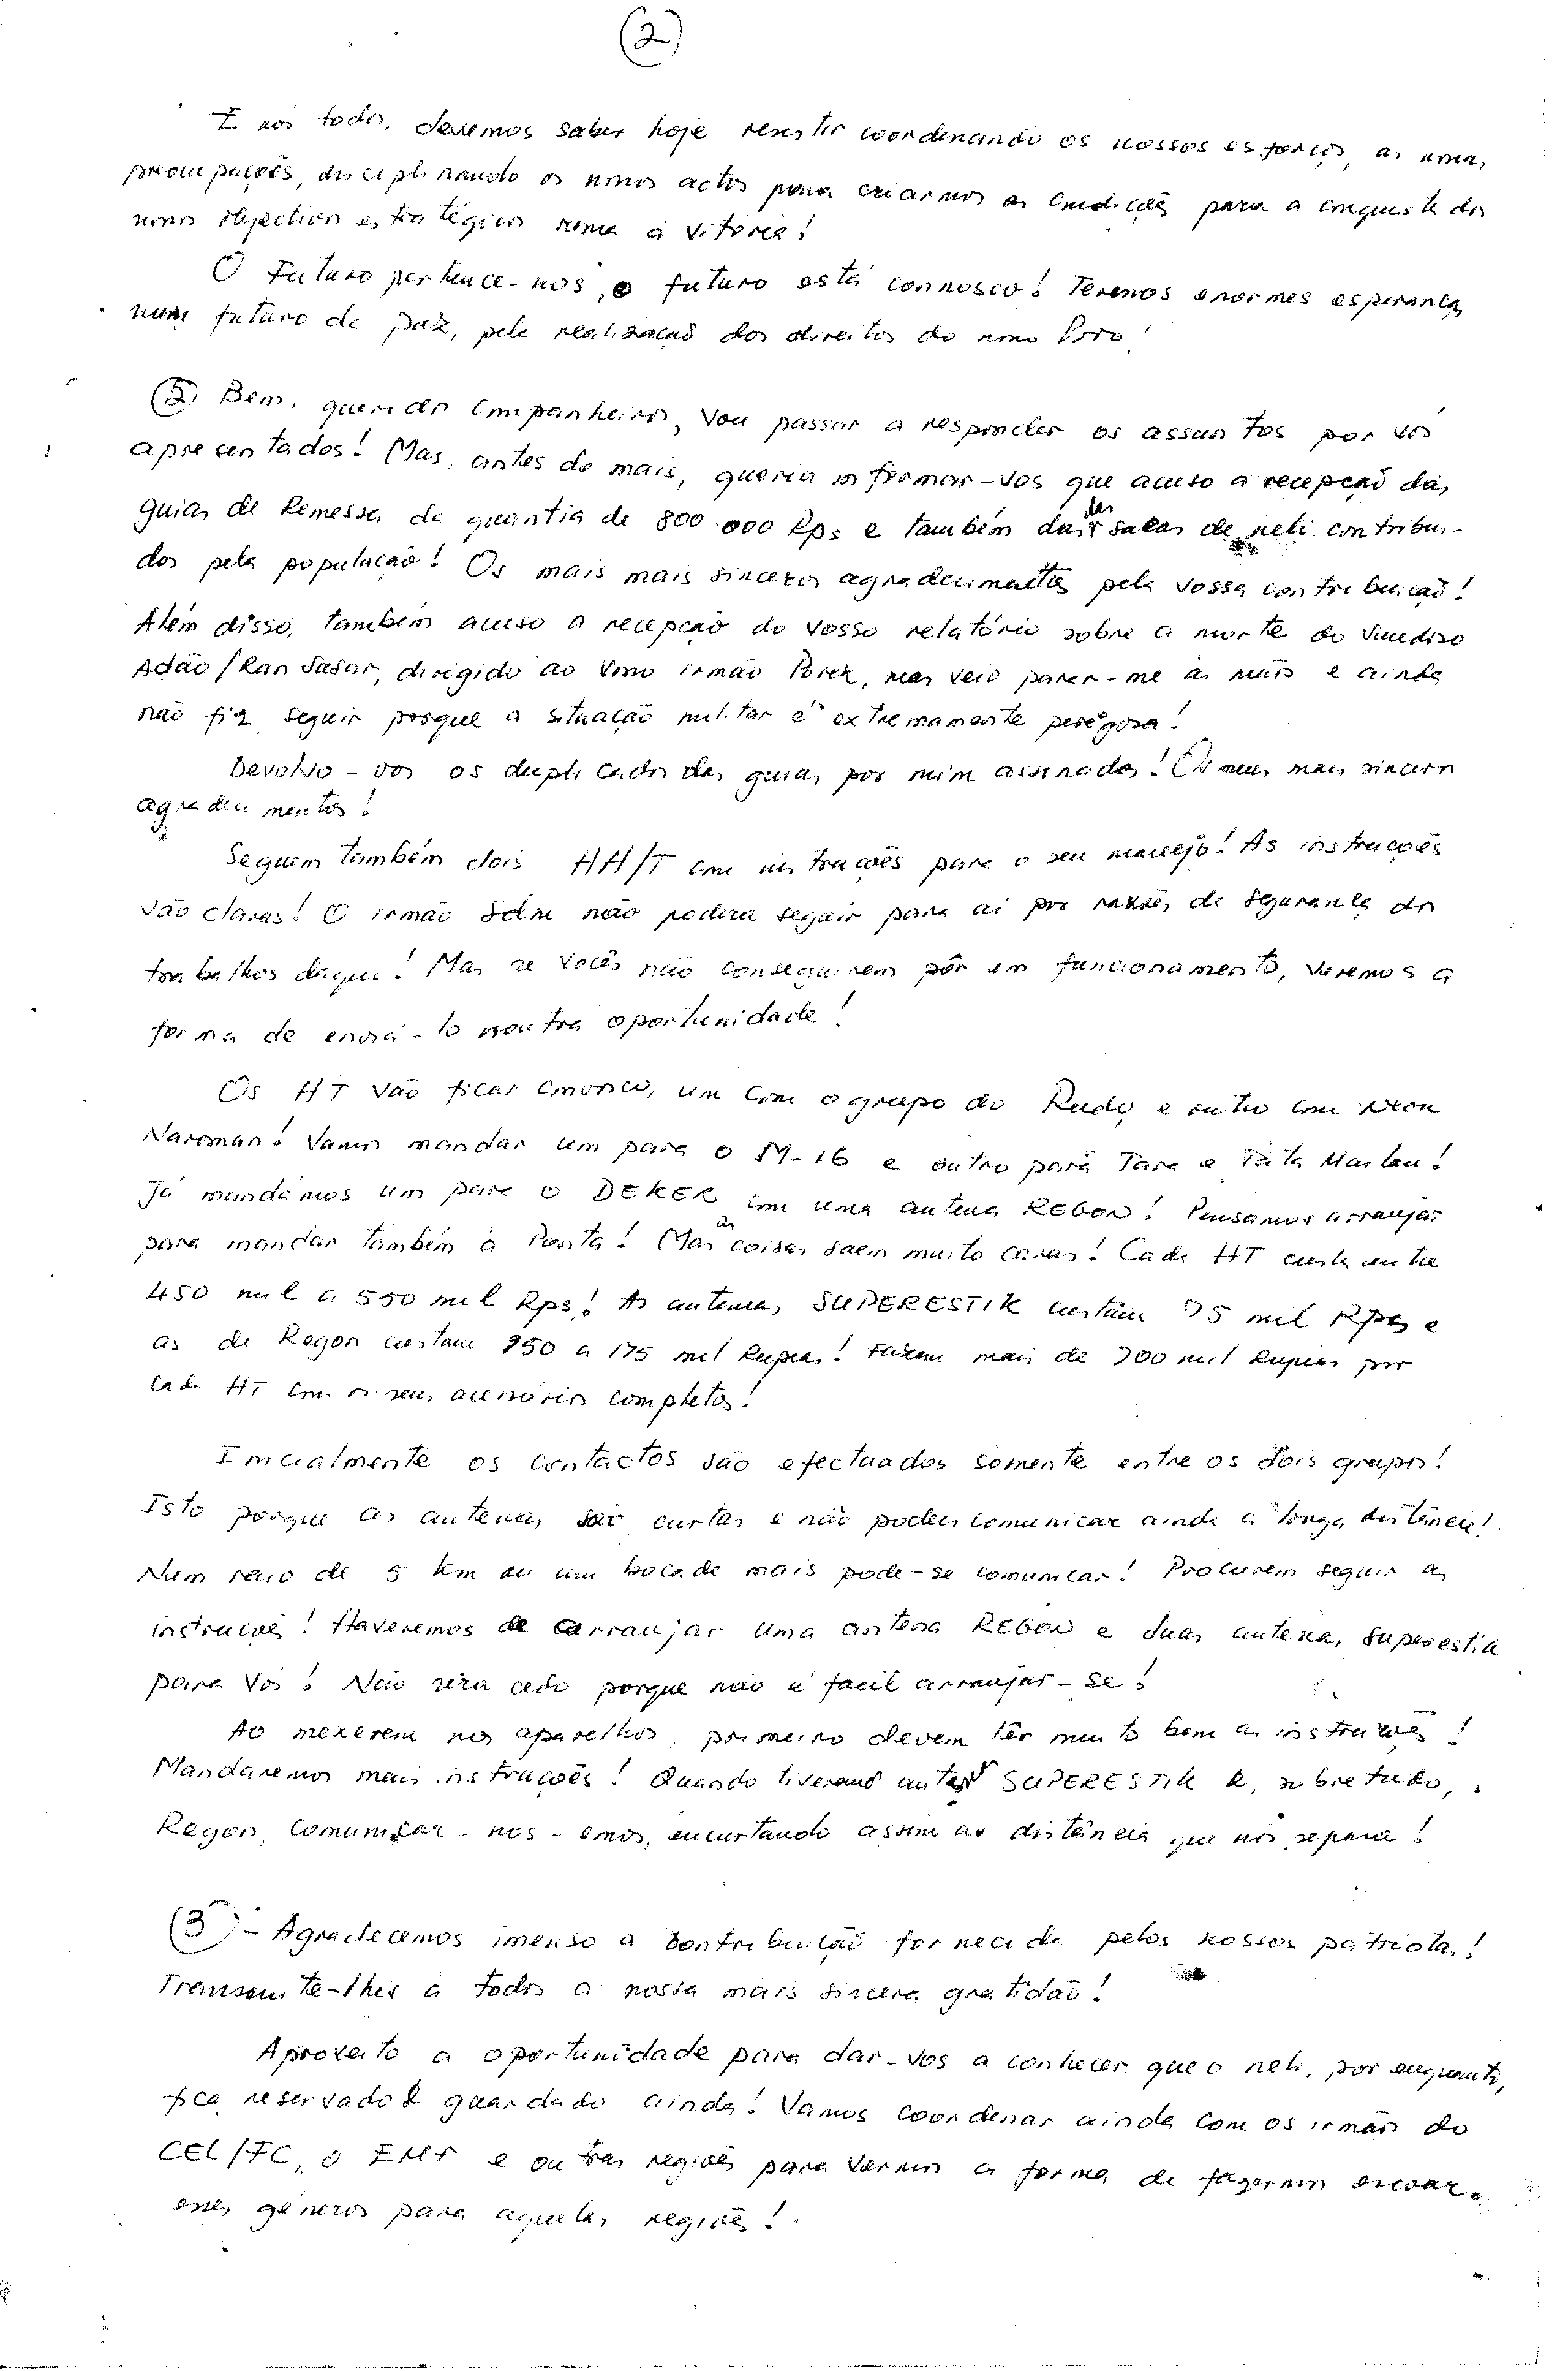 (2)
E nós todos, devemos saber hoje resistir coordenando os nossos esforços, as nossas
preocupações, disciplinando os nossos actos para criarmos as condições para a conquista dos
nossos objectivos estratégicos rumo à vitória!
O Futuro pertence-nos, o futuro está connosco! Teremos enormes esperanças
num futuro de paz, pela realização dos direitos do nosso Povo!
(2) Bem, queridos Companheiros, vou passar a responder os assuntos por vós
apresentados! Mas, antes de mais, queria informar-vos que acuso a recepção das
guias de Remessa da quantia de 800.000 Rps e também das das sacas de neli contribui-
dos pela população! Os mais mais sinceros agradecimentos pela vossa contribuição!
Além disso, também acuso a recepção do vosso relatório sobre a morte do
Adão/Ran Sasar, dirigido ao vosso irmão Porek, mas veio parar-me às mãos e ainda
não fiz seguir porque a situação militar é extremamente perêgosa!
Devolvo-vos os duplicados das guias por mim assinados! Os meus mais sinceros
agradecimentos!
Seguem também dois HH/T com instruções para o seu manejo! As instruções
vão claras! O irmão não poderá seguir para aí por razões de segurança dos
trabalhos daqui! Mas se vocês não conseguirem pôr em funcionamento, veremos a
forma de enviá-lo noutra oportunidade!
Os HT vão ficar convosco, um com o grupo do Rudy e outro com
Naroman! Vamos mandar um para o M-16 e outro para Tara e Tata Mailau!
Já mandámos um para o DEKER com uma antena REGON! Pensamos arranjar
para mandar também à Ponta! Mas as coisas saem muito caras! Cada HT custa entre
450 mil a 550 mil Rps! As antenas SUPERESTIK custam 75 mil Rps e
as de Regon custam 150 a 175 mil Rupias! Fazem mais de 700 mil Rupias por
cada HT com os seus acessórios completos!
Inicialmente os contactos são efectuados somente entre os dois grupos!
Isto porque as antenas são curtas e não podem comunicar ainda à longa distância!
Num raio de 5 km ou um bocado mais pode-se comunicar! Procurem seguir as
instruções! Haveremos de arranjar uma antena REGON e duas antenas superestik
para vós! Não será cedo porque não é facil arranjar-se!
Ao mexerem nos aparelhos, primeiro devem lêr muito bem as instruções!
Mandaremos mais instruções! Quando tiverem SUPERESTIK e, sobretudo,
Regon, comunicar-nos-emos, encurtando assim a distância que nos separa!
(3) - Agradecemos imenso a contribuição fornecida pelos nossos patriotas!
Transmite-lhes a todos a nossa mais sincera gratidão!
Aproveito a oportunidade para dar-vos a conhecer que o neli, por enquanto,
fica reservado & guardado ainda! Vamos coordenar ainda com os irmãos do
CEL/FC, o EMF e outras regiões para vermos a forma de fazermos enviar
esses géneros para aquelas regiões!